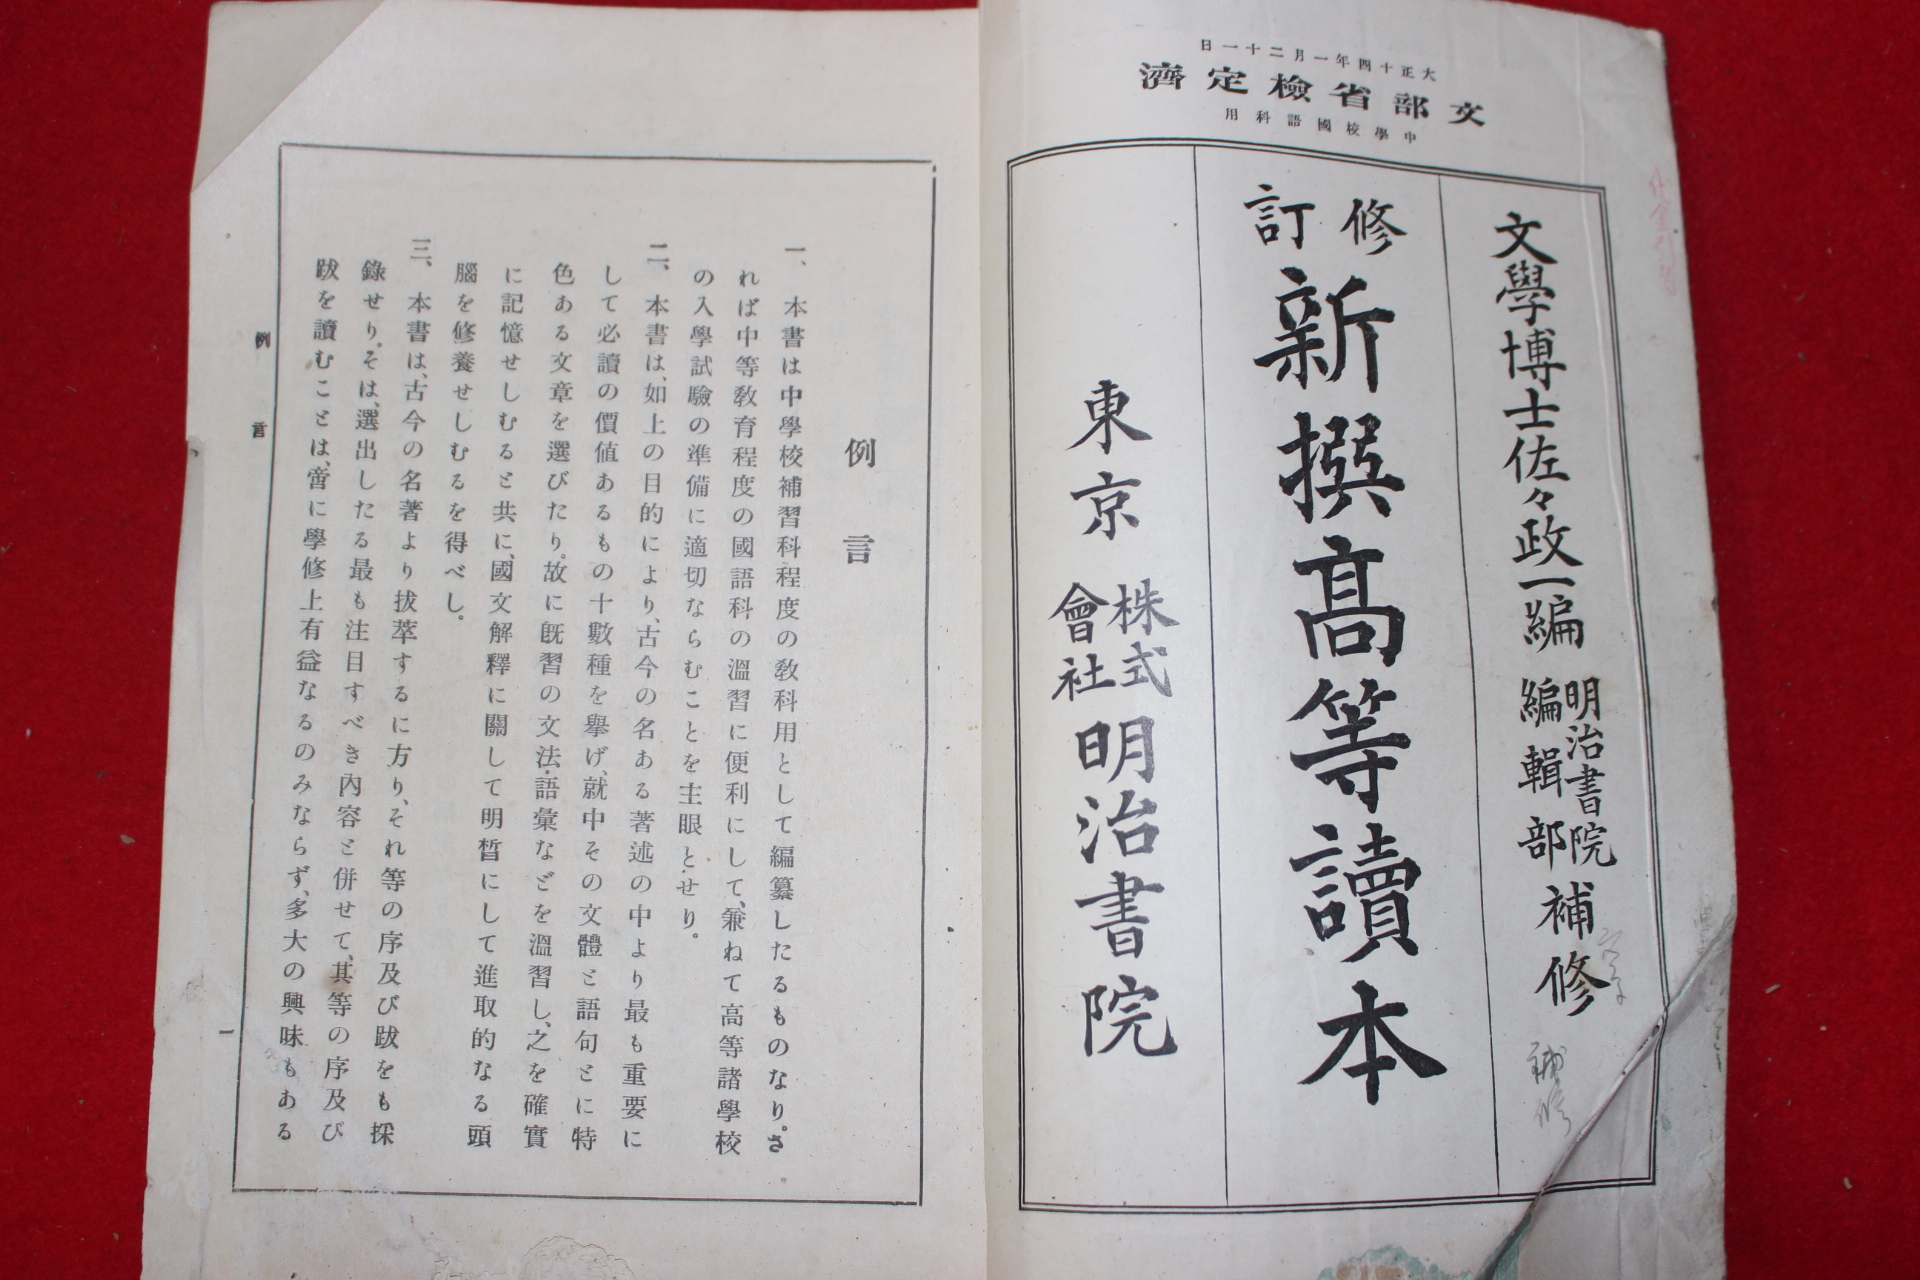 大正十四年一月二十一日
文部省檢定濟
中學校國語科用
文學博士佐々政一編 明治書院編輯部補修
修訂 新撰高等讀本
東京 株式會社 明治書院
補修
例言
一、本書は中學校補習科程度の敎科用として編纂したるものなり。さ
れば中等敎育程度の國語科の溫習に便利にして、兼ねて高等諸學校
の入學試驗の準備に適切ならむことを主眼とせり。
二、本書は、如上の目的により、古今の名ある著述の中より最も重要に
して必讀の價値あるもの十數種を擧げ、就中その文體と語句とに特
色ある文章を選びたり。故に旣習の文法・語彙などを溫習し、之を確實
に記憶せしむると共に、國文解釋に關して明晳にして進取的なる頭
腦を修養せしむるを得べし。
三、本書は、古今の名著より拔萃するに方り、それ等の序及び跋をも採
錄せり。そは、選出したる最も注目すべき內容と併せて、其等の序及び
跋を讀むことは、啻に學修上有益なるのみならず、多大の興味もある
例言
一